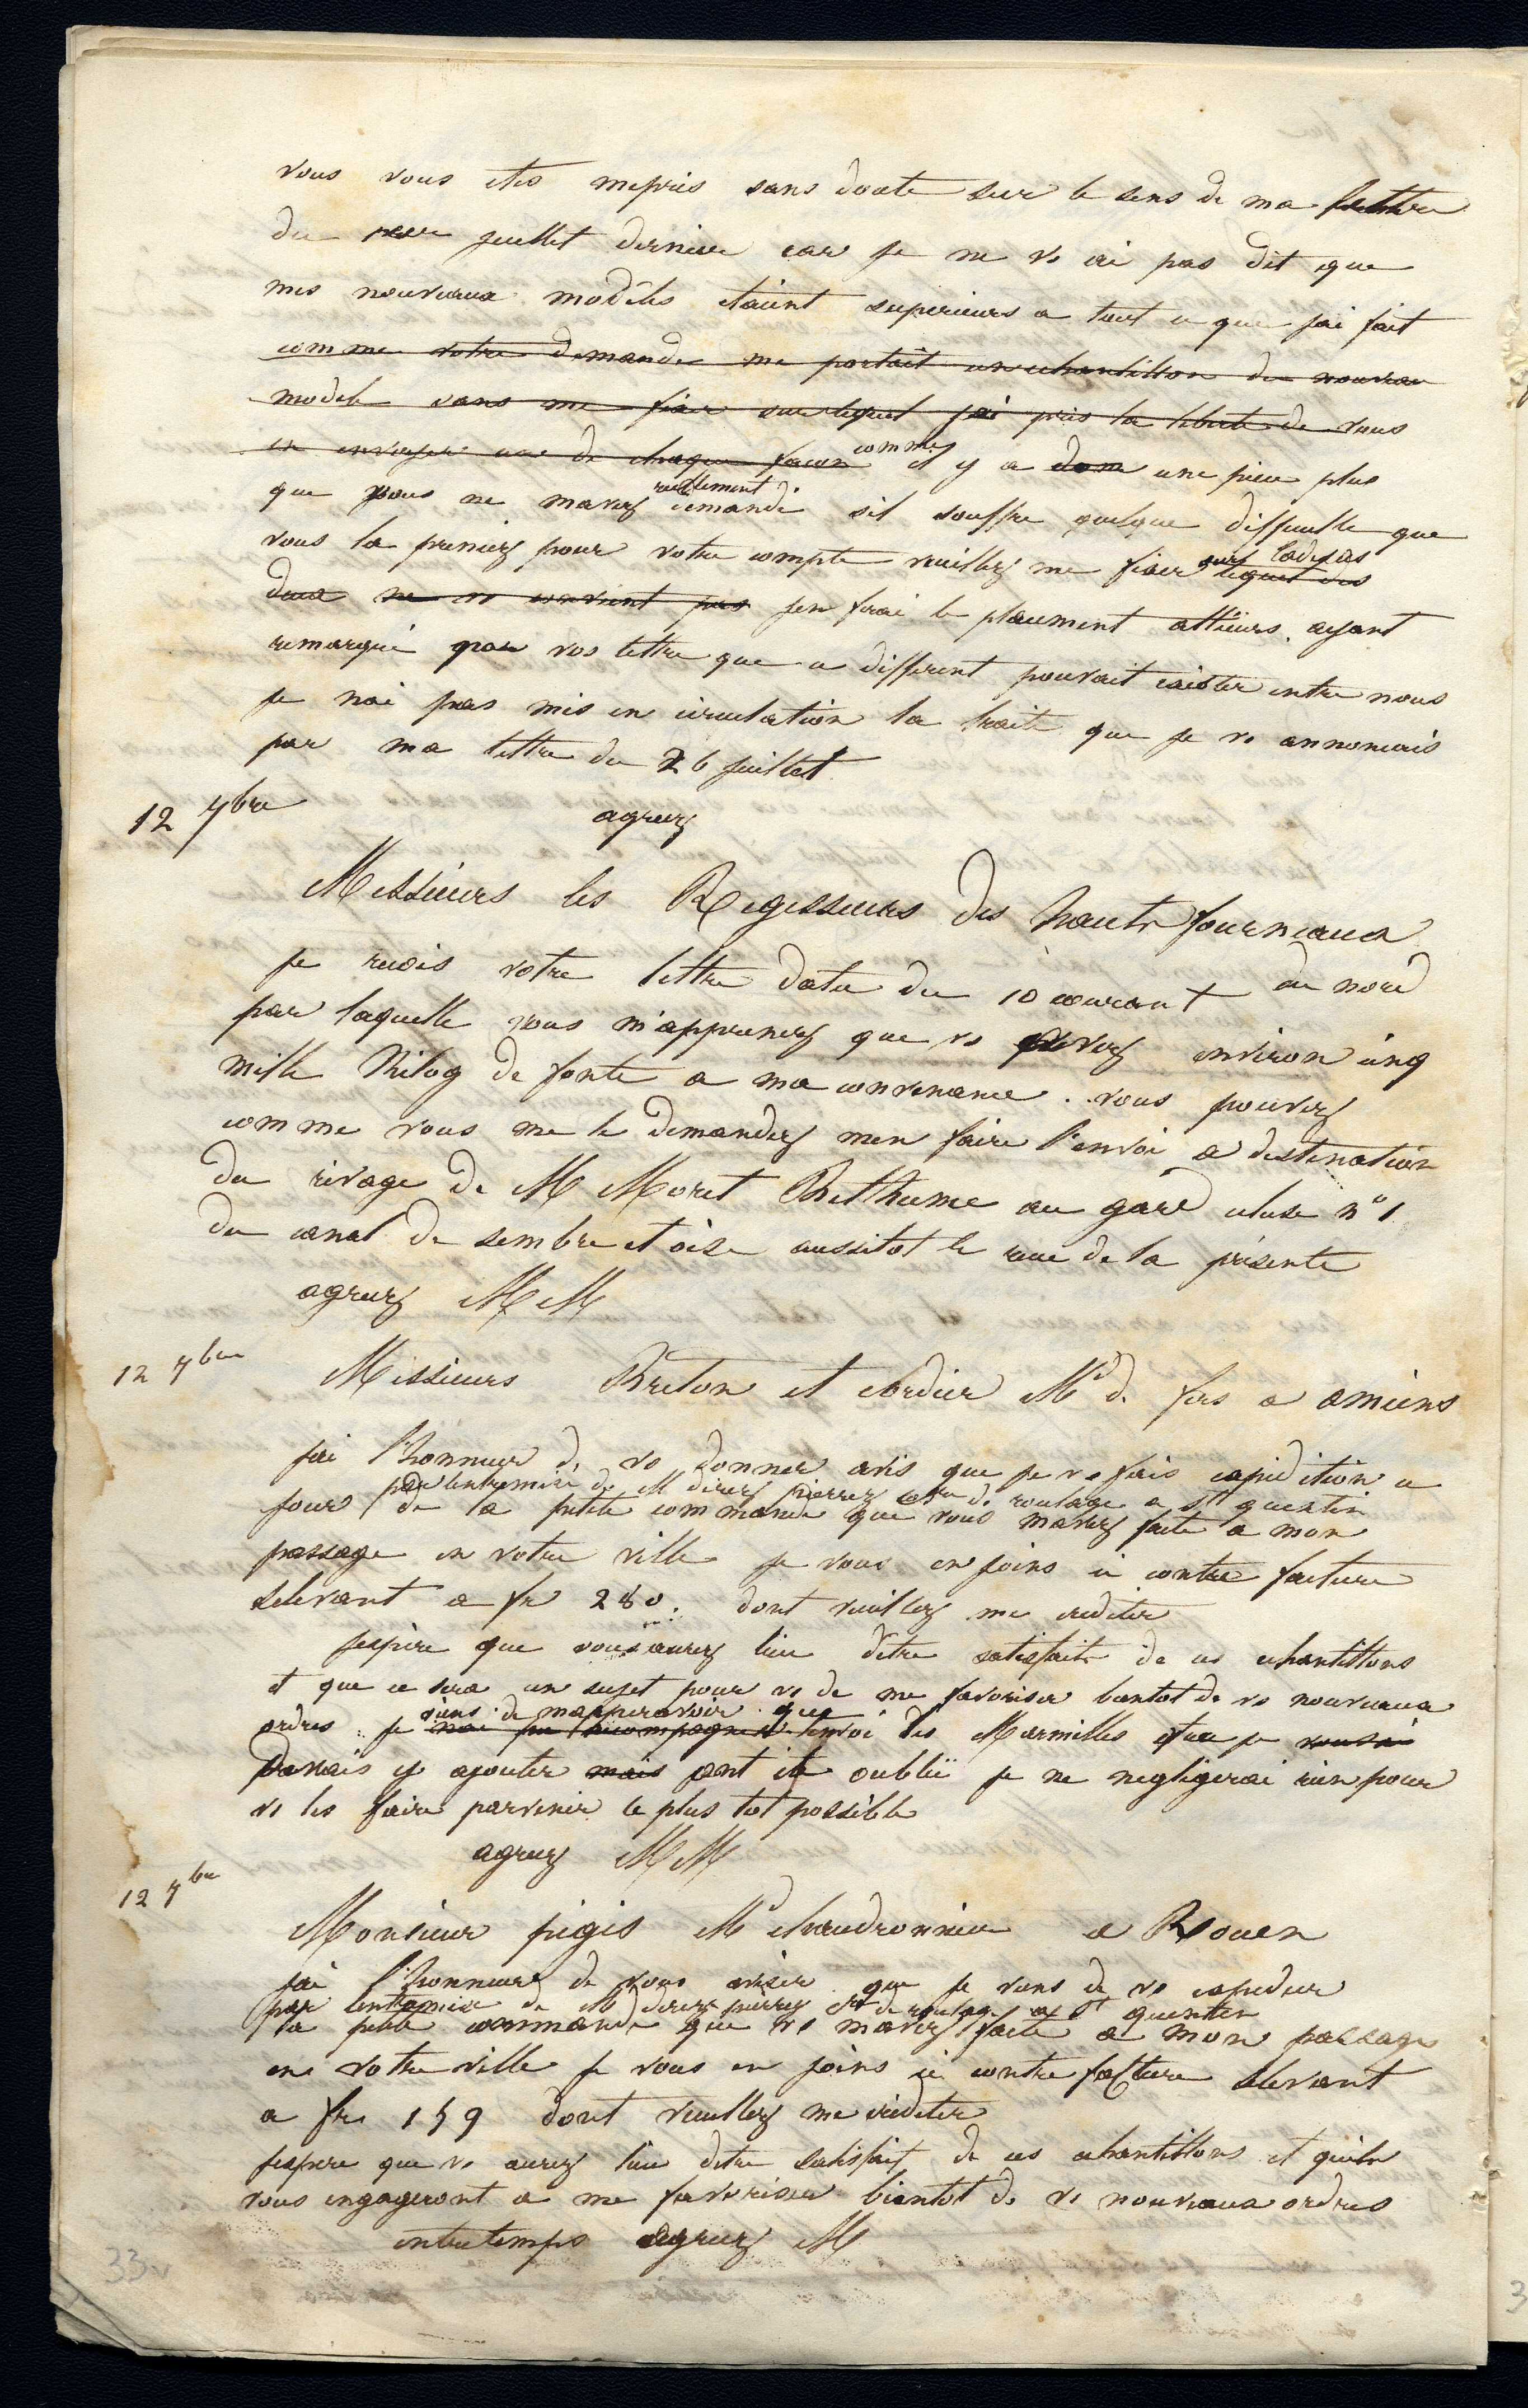 vous vous etes mepris sans doute sur le sens de ma lettre
du juillet dernier car je ne vs ai pas dit que
mes nouveaux modèles etaient superieurs a tout ce que jai fait
comme votre demande me portait un echantillon du nouveau
modele sans me fixer sur lequel jai pris la liberté de vous
en envoyer une de chaque facon comme il y a une piece plus
que vous ne mavez reellement demandé sil souffre quelque difficulte que
vous la preniez pour votre compte veuillez me fixer ladessus lequel des
deux ne vs convient pas jen ferai le placement allieurs. ayant
remarqué par vos lettre que ce different pouvait exister entre nous
je nai pas mis en circulation la traite que je vs annoncais
par ma lettre du 26 juillet
agreez
12 7bre
Messieurs les Regisseurs des hauts fourneaux
du nord
je recois votre lettre datee du 10 courant
par laquelle vous m'apprenez que vs avez environ cinq
mille Kilog de fonte a ma convenance. vous pouvez
comme vous me le demandez men faire l'envoi a destination
du rivage de M Moret Bethume au gard ecluse n° 1
du canal de sembre et oise aussitot le recue de la présente
agreez MM
12 7bre
Messieurs Breton et cordier Md de fers a amiens
jai l'honneur de vs donner avis que je vs fais expedition ce
par lentremise de M direz pierrez de roulage a st quentin
jour de la petite commande que vous mavez faite a mon
passage en votre ville je vous en joins ci contre facture
selevant a fr 280. dont veuillez me crediter
jespère que vous aurez lieu dêtre satisfait de ces echantillons
et que ce sera un sujet pour vs de me favoriser bientot de vs nouveaux
viens de mappercevoir que
ordres je nai pu accompagner lenvoi des Marmittes que je
devais y ajouter mais ont ete oublié je ne negligerai rien pour
vs les faire parvenir le plus tot possible
agreez MM
12 7bre
Monsieur pigis Md chaudronnier a Rouen
jai l'honneur de vous aviser que je viens de vs expedier
par lentremise de M direz pierrez de roulage a St quentin
la petite commande que vs mavez faite a mon passage
en votre ville je vous en joins ci contre facture selevant
a frs 159 dont veuillez me crediter
jespere que vs aurez lieu detre satisfait de ces echantillons et quils
vous engageront a me favoriser bientot de vs nouveaux ordres
entretemps agreez M
33v